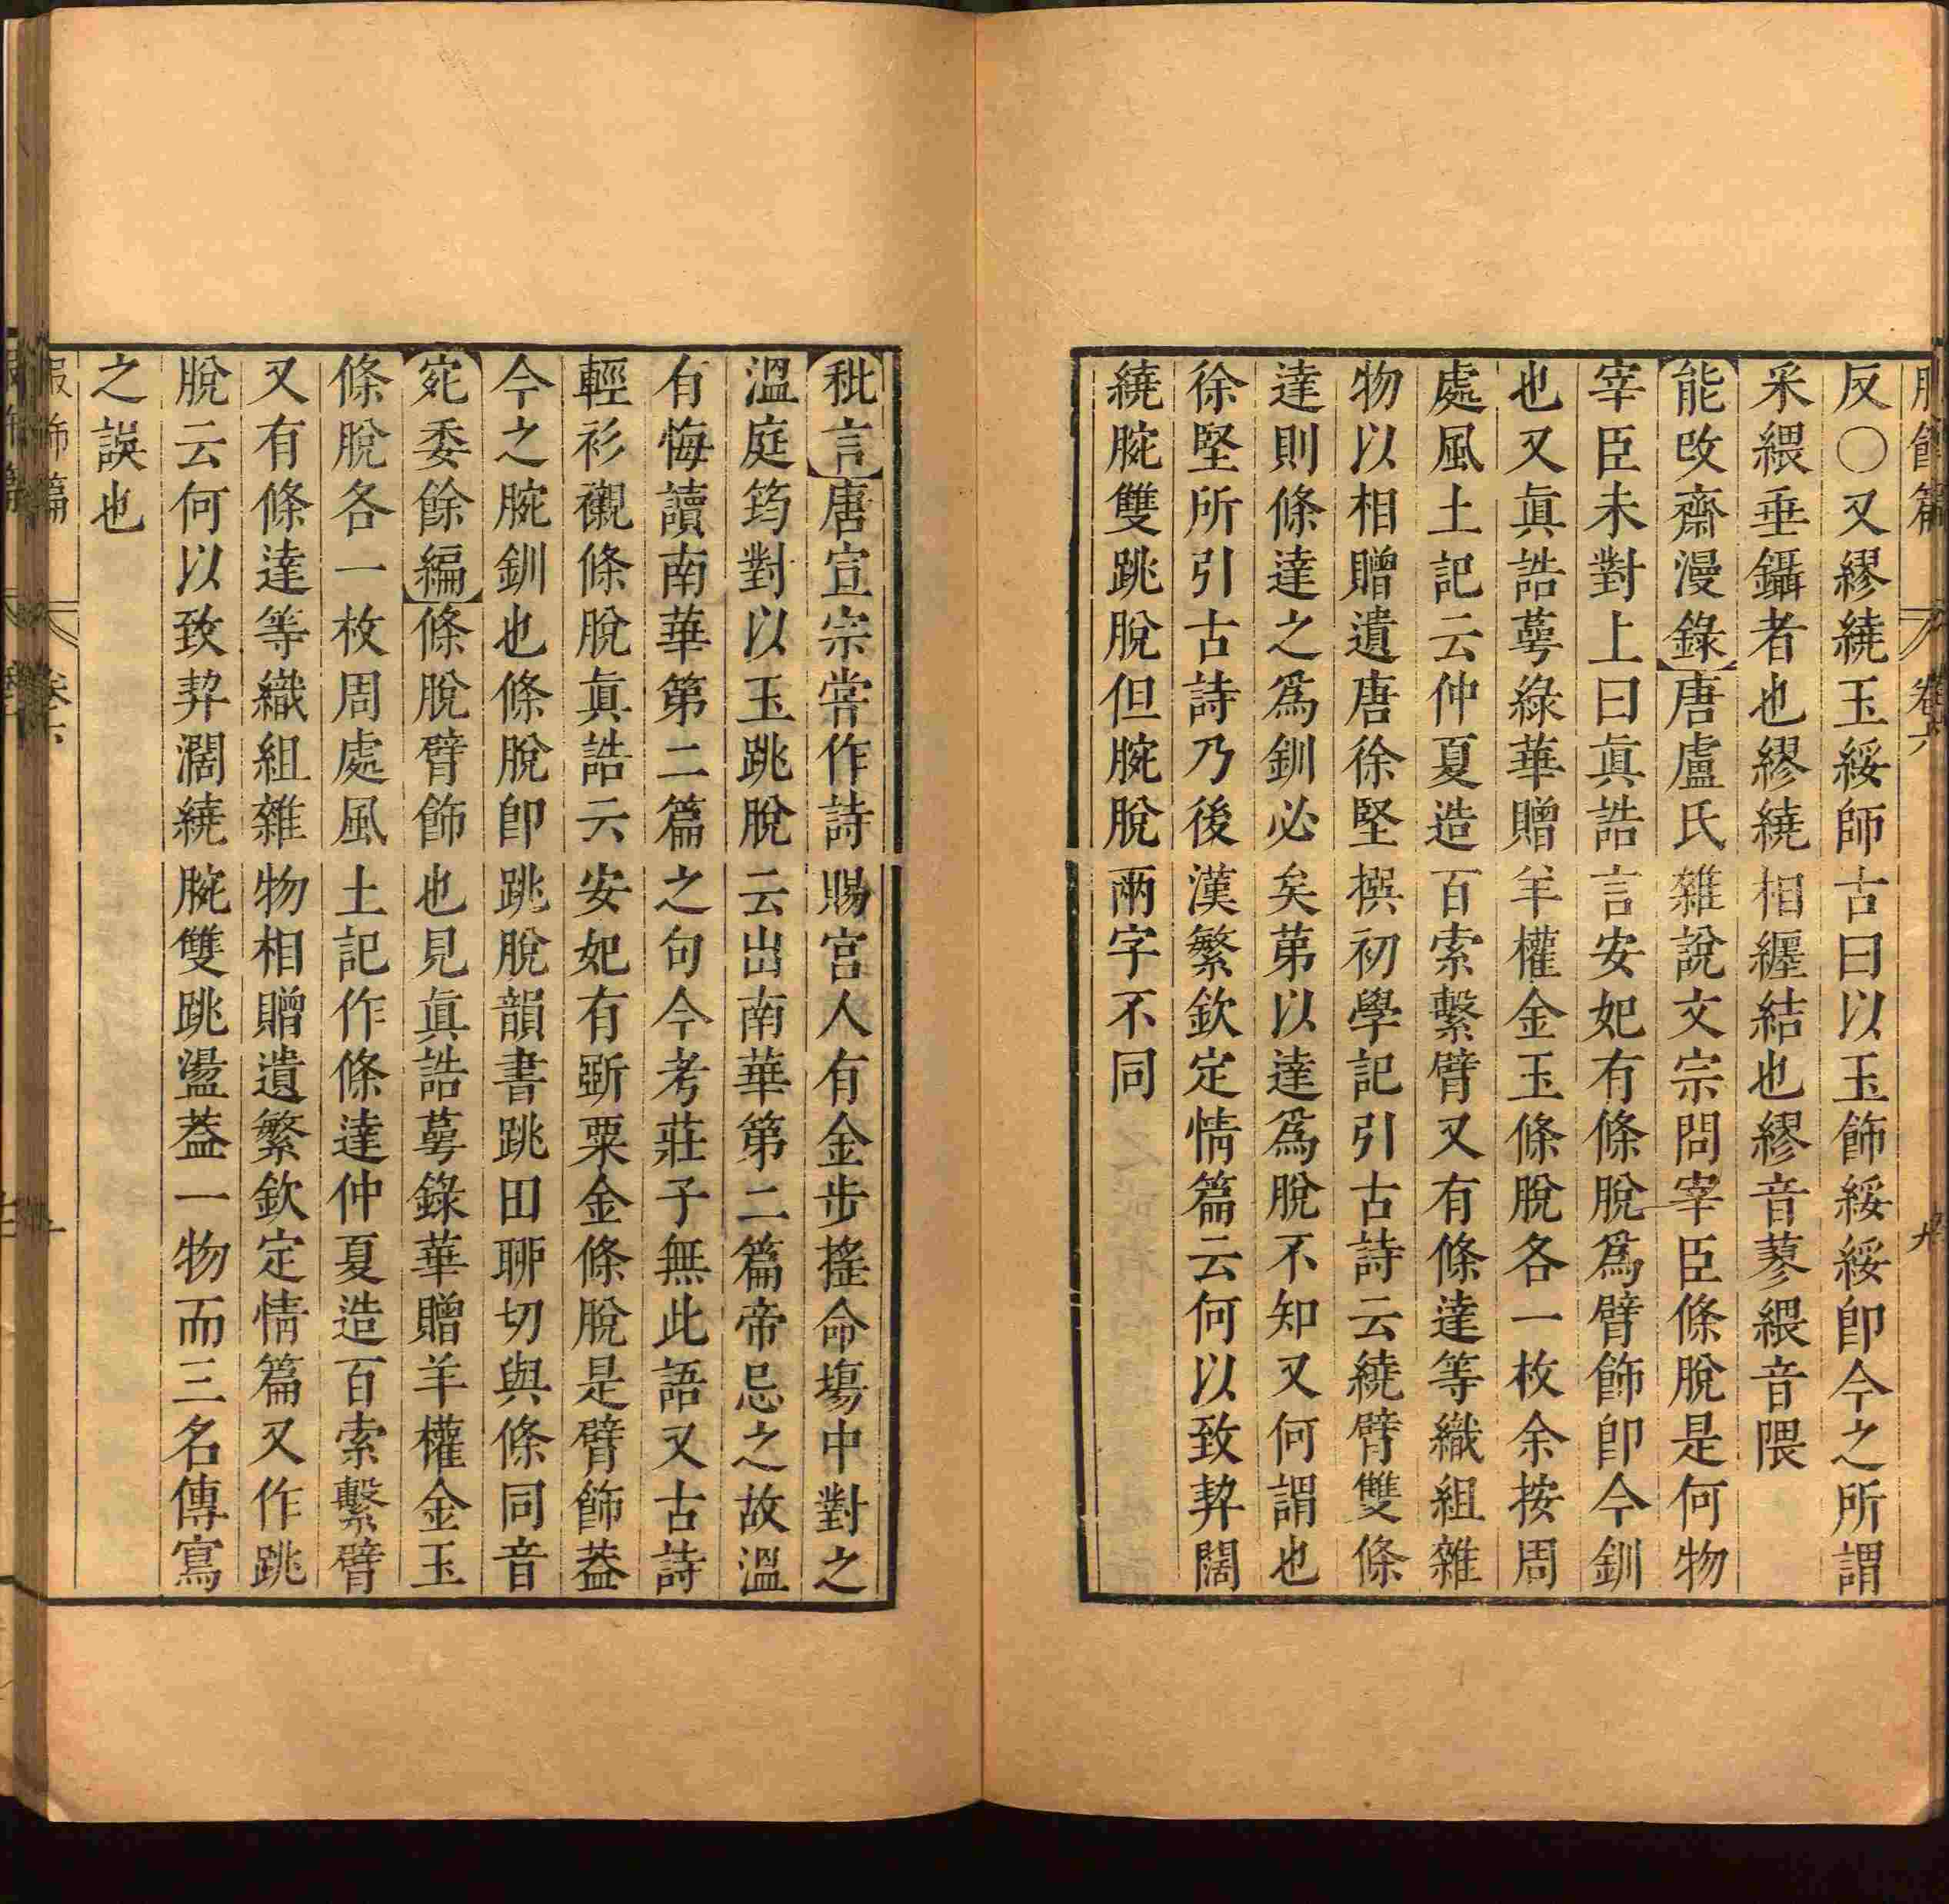 反〇又繆繞玉綏師古曰以玉飾綏綏卽今之所謂
采緩垂鑷者也繆繞相纏結也繆音蓼緩音隈
能改齋漫錄唐盧氏雜說文宗問宰臣條脫是何物
宰臣未對上曰眞誥言安妃有條脫爲臂飾卽今釧
也又眞誥萼綠華贈羊權金玉條脫各一枚余按周
處風土記云仲夏造百索繫臂又有條達等織組雜
物以相贈遺唐徐堅撰初學記引古詩云繞臂雙條
達則條達之爲釧必矣第以達爲脫不知又何謂也
徐堅所引古詩乃後漢繁欽定情篇云何以致契闊
繞腕雙跳脫但腕脫兩字不同
秕言唐宣宗嘗作詩賜宮人有金步搖命場中對之
溫庭筠對以玉跳脫云出南華第二篇帝忌之故溫
有悔讀南華第二篇之句今考莊子無此語又古詩
輕衫襯條脫眞誥云安妃有斵粟金條脫是臂飾葢
今之腕釧也條脫卽跳脫韻書跳田聊切與條同音
宛委餘編條脫臂飾也見眞誥萼錄華贈羊權金玉
條脫各一枚周處風土記作條達仲夏造百索繫臂
又有條達等織組雜物相贈遺繁欽定情篇又作跳
脫云何以致契濶繞腕雙跳盪葢一物而三名傳寫
之誤也
服飾篇
卷六